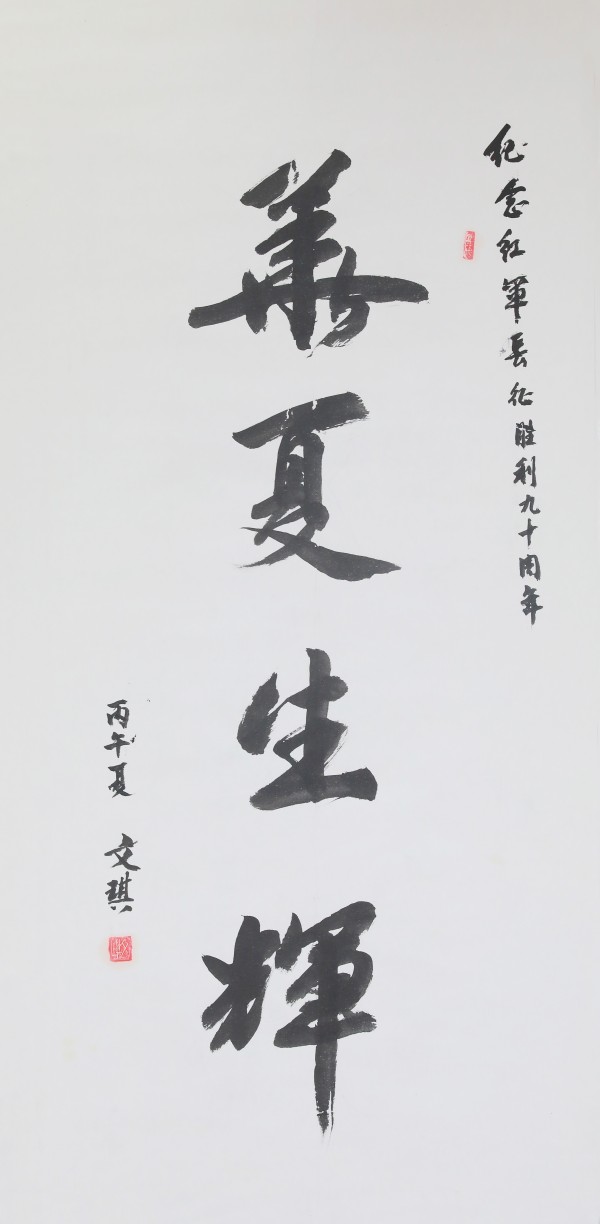 紀念紅軍長征勝利九十周年
華夏生輝
丙午夏 文琪